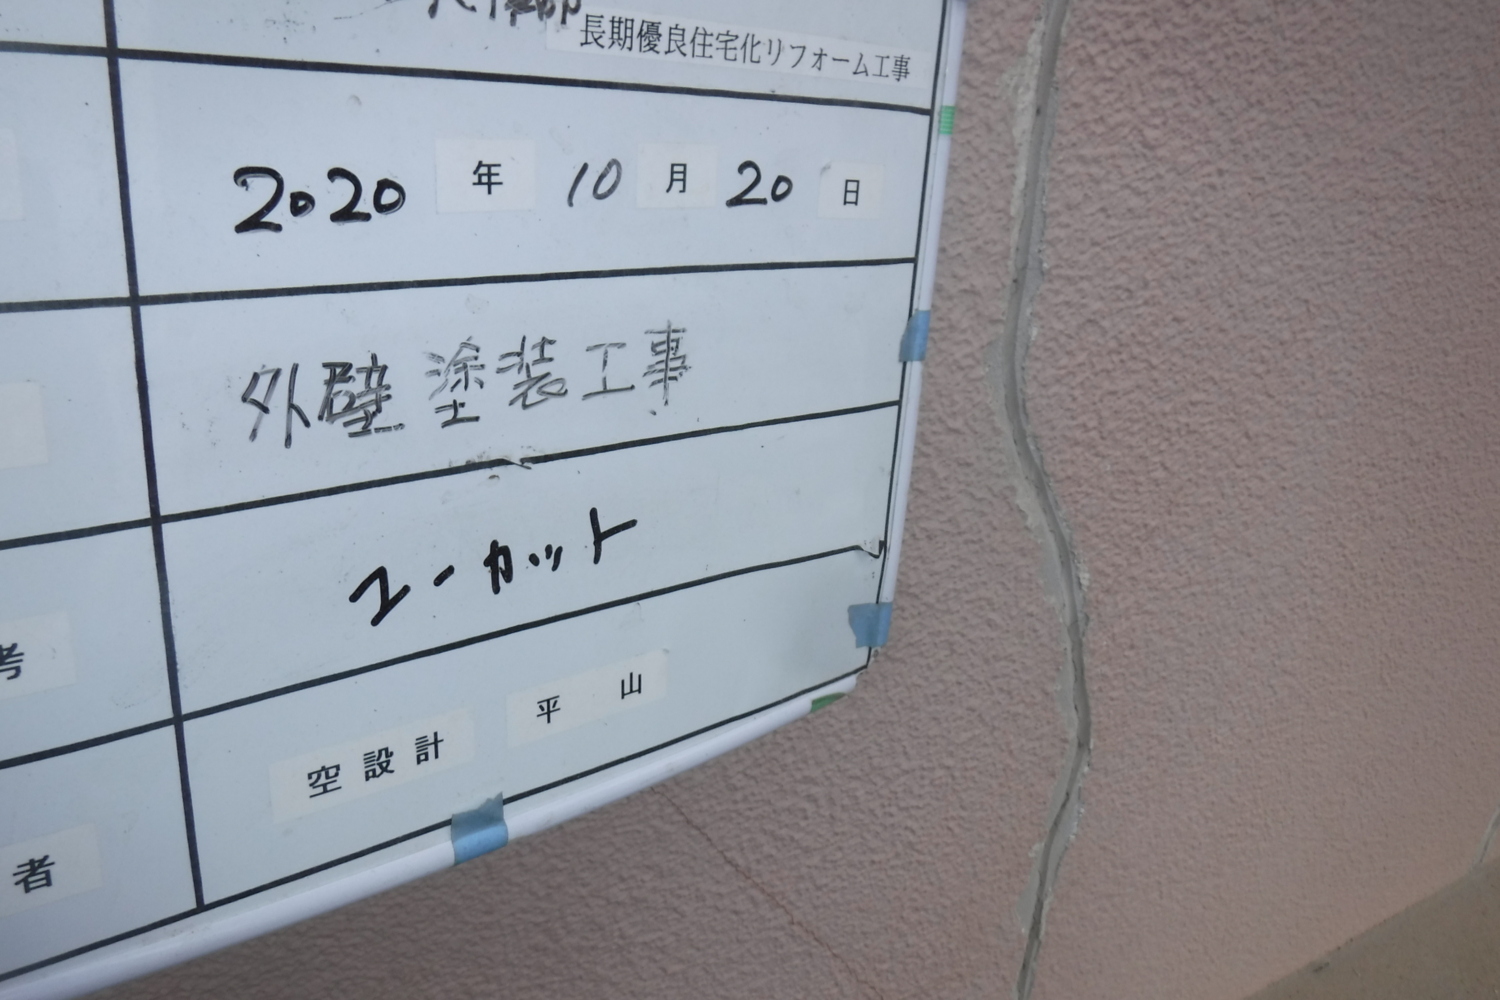 長期優良住宅化リフォーム工事
2020 年 10 月 20 日
外壁塗装工事
ユーカット
考
空設計 平山
者